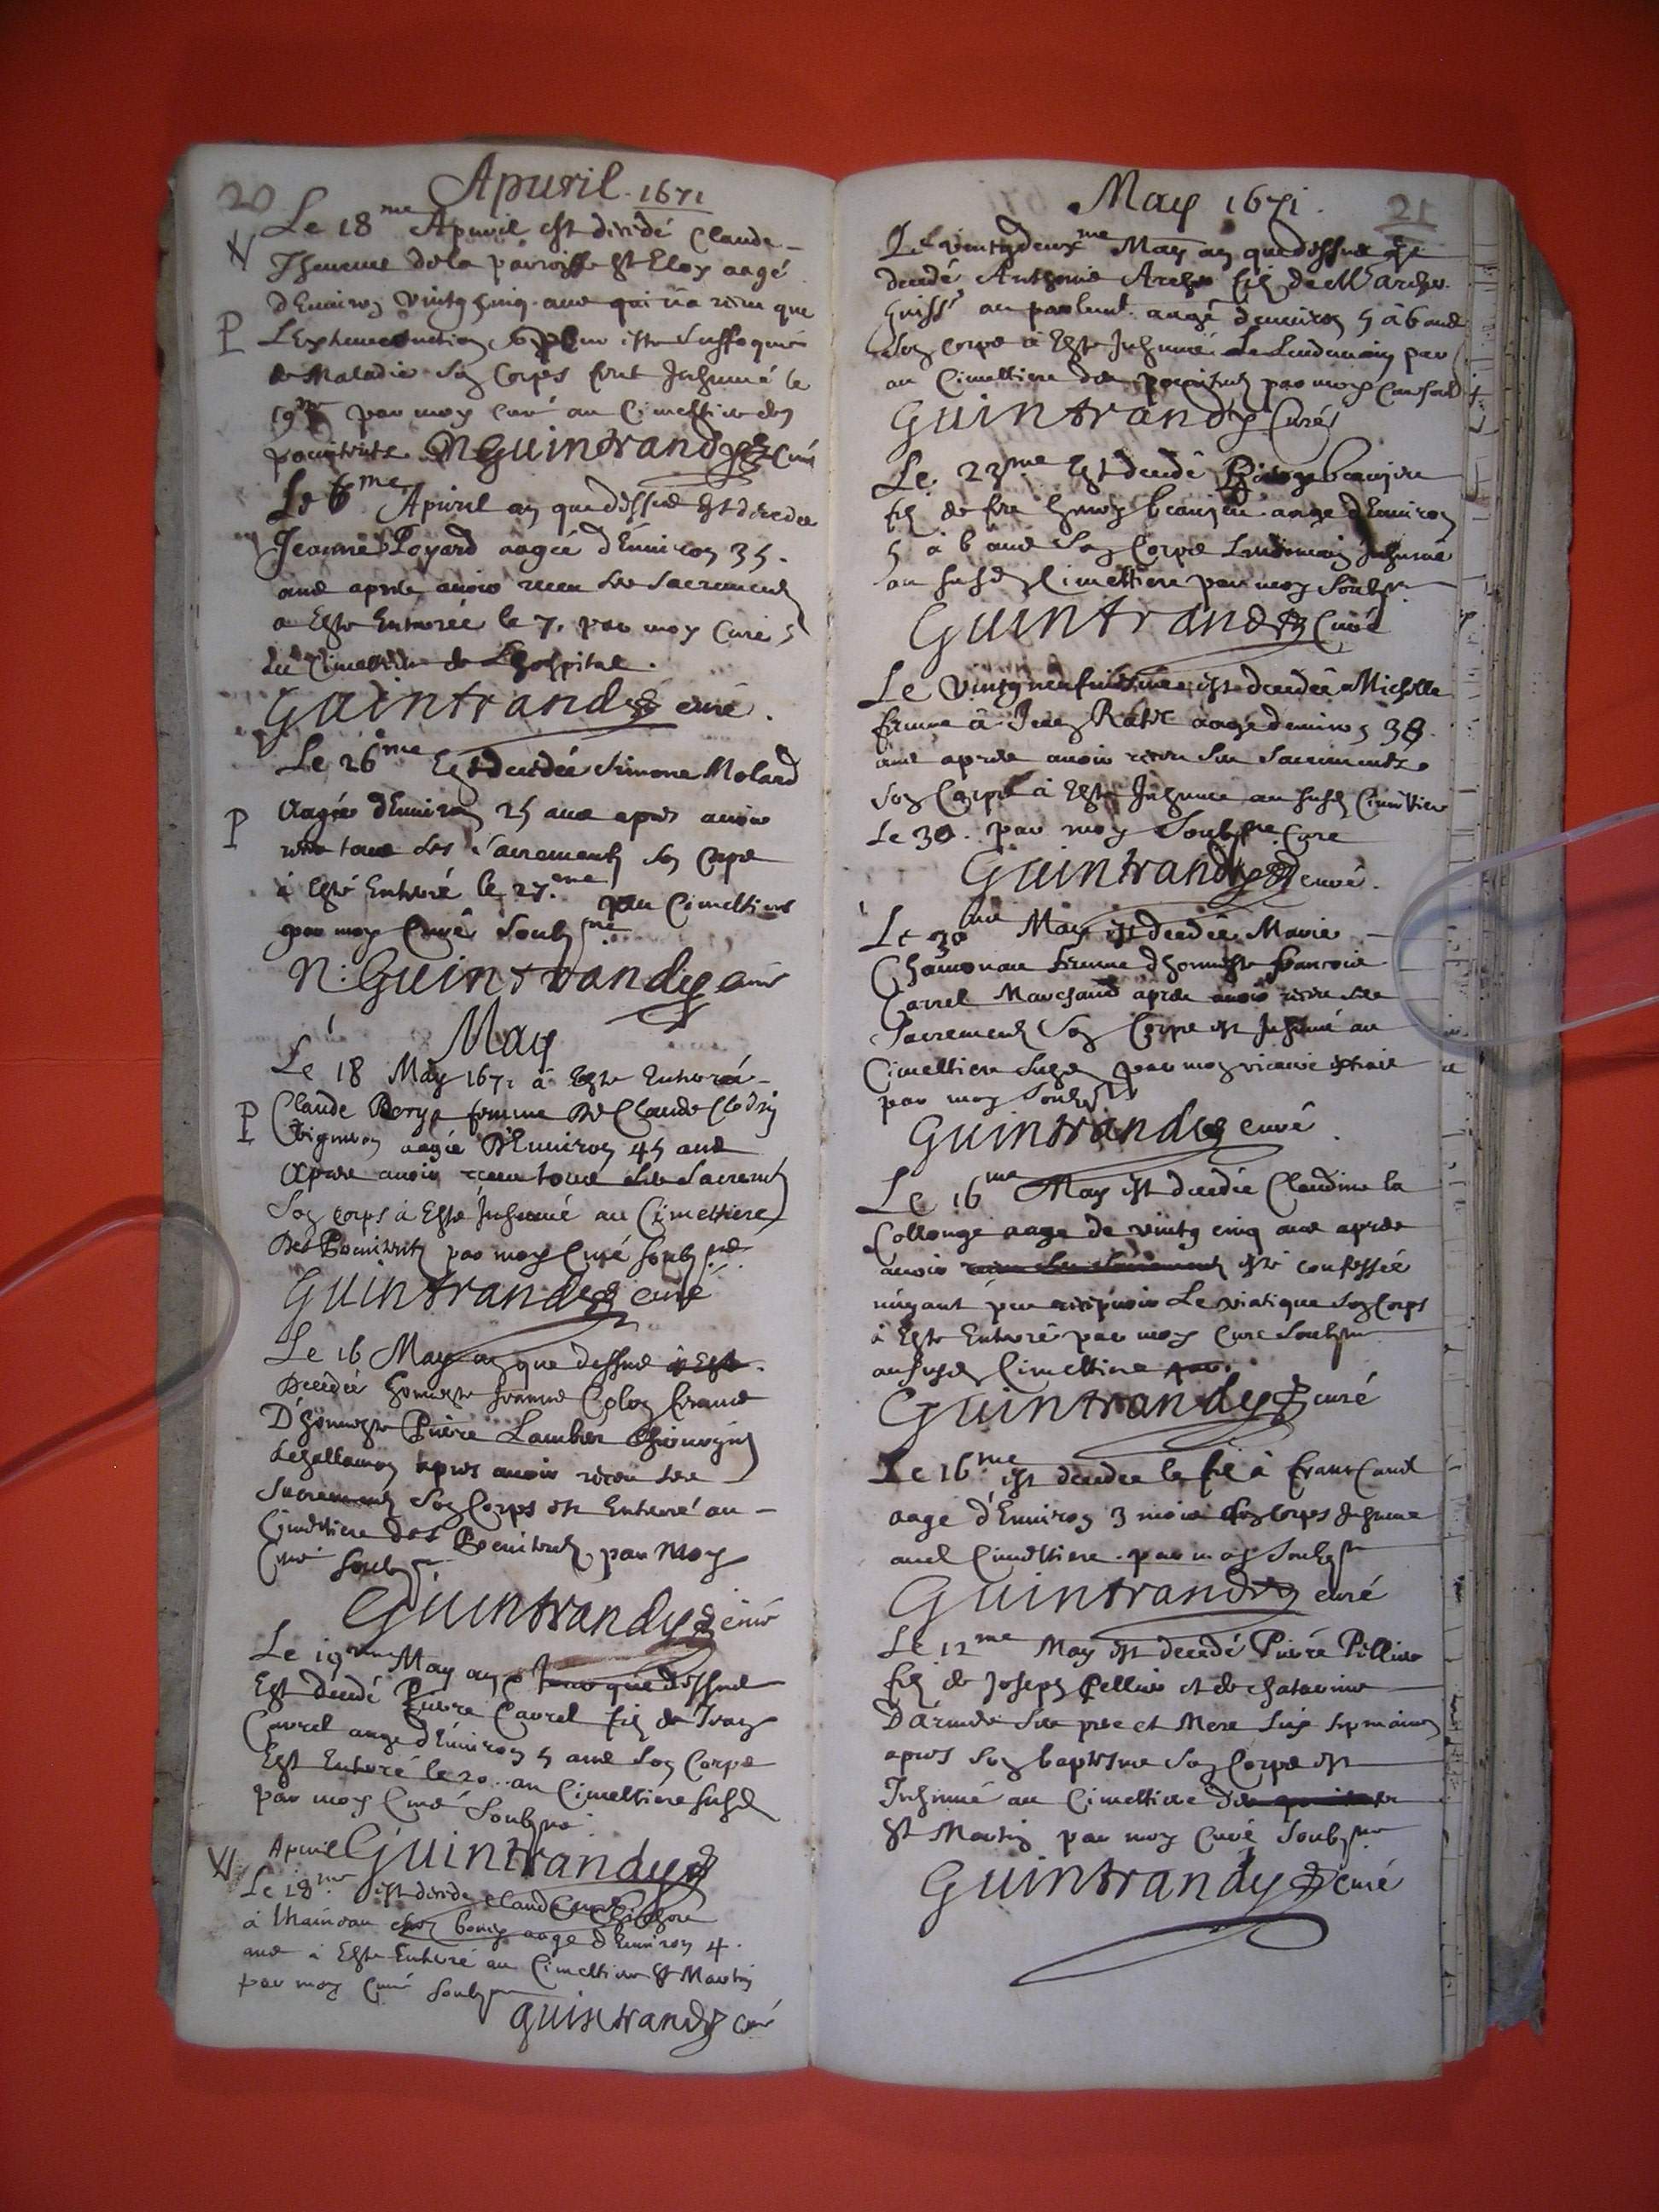 20
Apuril 1671
Le 18me Apuril est décédé Claude
Theuenet de la parroisse St Eloy aagé
d'Enuiron vintg cinq ans qui n'a receu que
L'Extreme onction pour estre suffoqué
de Maladie son Corps fust Inhumé le
19me par moy curé au Cimettiere des
poenitents NGuintrandy Curé
Le 6me Apuril an que dessus est decedée
Jeanne Poyard aagée d'Enuiron 35
ans aprés auoir receu Les Sacrements
a Esté Enterrée le 7. par moy Curé
du Cimettiere de Lhospital.
Guintrandy curé.
Le 26me Est decedée Simone Molard
P
Aagée d'Enuiron 25 ans aprés auoir
receu tous Les Sacrements son Corps
à Esté Enterré le 27eme au Cimettiere
par moy Curé Soubsné
N: Guintrandy curé
May
Le 18 May 1671 à Esté Enterrée
P
Claude femme de Claude
Vigneron aagée D'Enuiron 45 ans
Aprés auoir receu tous Les Sacrements
Son corps à Esté Inhumé au Cimettiere
Des Poenitents par moy Curé soubsné
Guintrandy curé
Le 16 May an que dessus à Esté
Decedée honneste femme
D'honneste Pierre Lambert
aprés auoir receu Les
Sacrements Son Corps est Enterré au
Cimettiere des Poenitents par Moy
Curé Soubsné
Guintrandy curé
Le 19me May an que dessus
Est decedé Pierre Carrel fils de Jean
Carrel aagé d'Enuiron 5 ans Son Corps
Est Enterré le 20. au Cimettiere susd
par moy Curé Soubsné
Apuril Guintrandy
Le 18me est decedé Claude
à aagé d'Enuiron 4
ans à Esté Enterré au Cimettiere St Martin
par moy Curé Soubsné
Guintrandy curé
May 1671.
21
Le vintgdeuxme May an que dessus est
decedé Anthoine Archer fils de Mr Archer
huissr au parlemt aagé denuiron 5 à 6 ans
Son Corps à Esté Inhumé Le Lendemain par
au Cimettiere des poenitents par moy
Guintrandy Curé
Le 23me Est decedé beaujeu
fils de feu beaujeu aagé d'Enuiron
5 à 6 ans Son Corps Lendemain Inhumé
au susd Cimettiere par moy Soubsné
Guintrandy Curé
Le Vintgneufuiesme est decedée Michelle
femme à Jean aagée denuiron 38
ans aprés auoir receu Les Sacrements
Son Corps à Esté Inhumé au susd Cimettiere
Le 30. par moy Soubsné Curé
Guintrandy curé.
Le 30me May est decedée Marie
femme d'honneste francois
Carrel Marchand aprés auoir receu Les
Sacrements Son Corps est Inhumé au
Cimettiere Susd par mon vicaire
par moy Soubsné
Guintrandy curé
Le 16me May est decedée Claudine la
Collonge aagé de vintg cinq ans aprés
auoir receu Les Sacrements esté confessée
n'ayant peu recepuoir Le viatique Son Corps
à Esté Enterré par moy Curé Soubsné
au susd Cimettiere par.
Guintrandy curé
Le 16me est decedée le fils à
aagé d'Enuiron 3 mois Son corps Inhumé
aud Cimettiere par moy Soubsné
Guintrandy curé
Le 12me May est decedé Pierre Pellier
fils de Joseph Pellier et de Chatarine
ses pere et Mere Six sepmaines
aprés Son baptesme Son Corps est
Inhumé au Cimettiere des poenitents
St Martin par moy Curé Soubsné
Guintrandy Curé